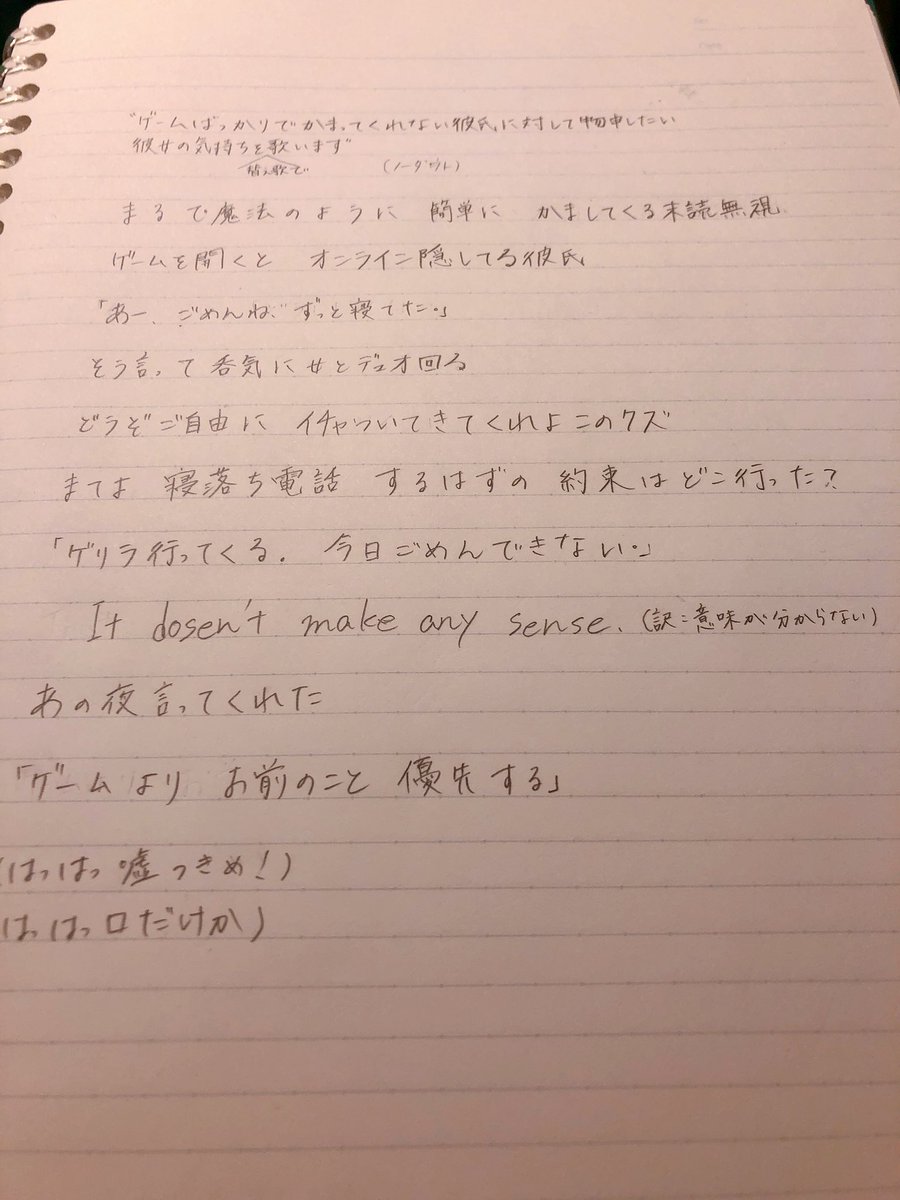 "ゲームばっかりでかまってくれない彼氏に対して物申したい
彼女の気持ちを歌います"
替え歌で (ノーダウト)
まるで魔法のように 簡単に かましてくる未読無視
ゲームを開くと オンライン隠してる彼氏
「あー、ごめんね、ずっと寝てた。」
そう言って呑気に女とデュオ回る
どうぞご自由に イチャついてきてくれよこのクズ
または 寝落ち電話 するはずの 約束はどこ行った?
「ゲリラ行ってくる. 今日ごめんできない。」
It dosen't make any sense. (訳:意味が分からない)
あの夜言ってくれた
「ゲームより お前のこと 優先する」
(はっはっ嘘つきめ!)
(はっはっ口だけか)